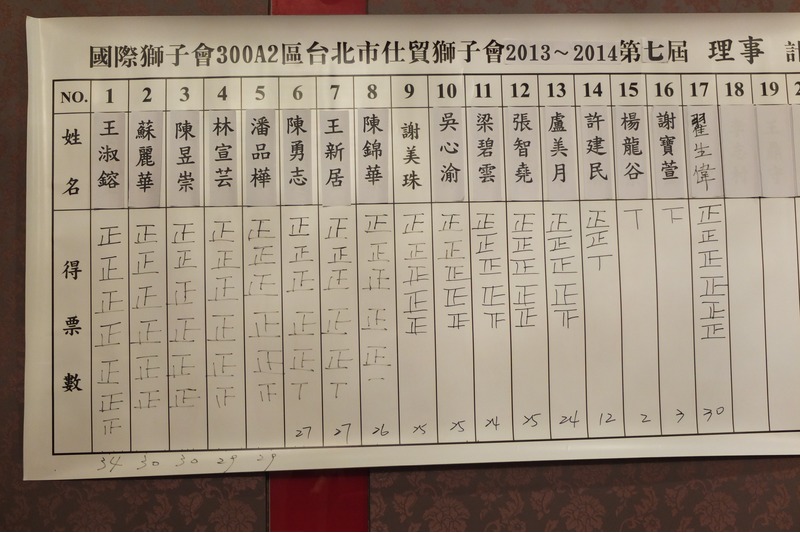 國際獅子會300A2區台北市仕貿獅子會2013～2014第七屆 理事
NO. 1 2 3 4 5 6 7 8 9 10 11 12 13 14 15 16 17 18 19
姓名 王淑鎔 蘇麗華 陳昱崇 林宣芸 潘品樺 陳勇志 王新居 陳錦華 謝美珠 吳心渝 梁碧雲 張智堯 盧美月 許建民 楊龍谷 謝寶萱 翟生偉
得票數
正 正 正 正 正 正 正 正 正 正 正 正 正 正 丅 下 正
正 正 正 正 正 正 正 正 正 正 正 正 正 正 正
正 正 正 正 正 正 正 正 正 正 正 正 正 丅 正
正 正 正 正 正 正 正 正 正 正 正 正 正 正
正 正 正 正 正 正 正 正 正 正
正 正 正 丅 丅 一 正
27 27 26 25 25 24 25 24 12 2 3 30
34 30 30 29 29